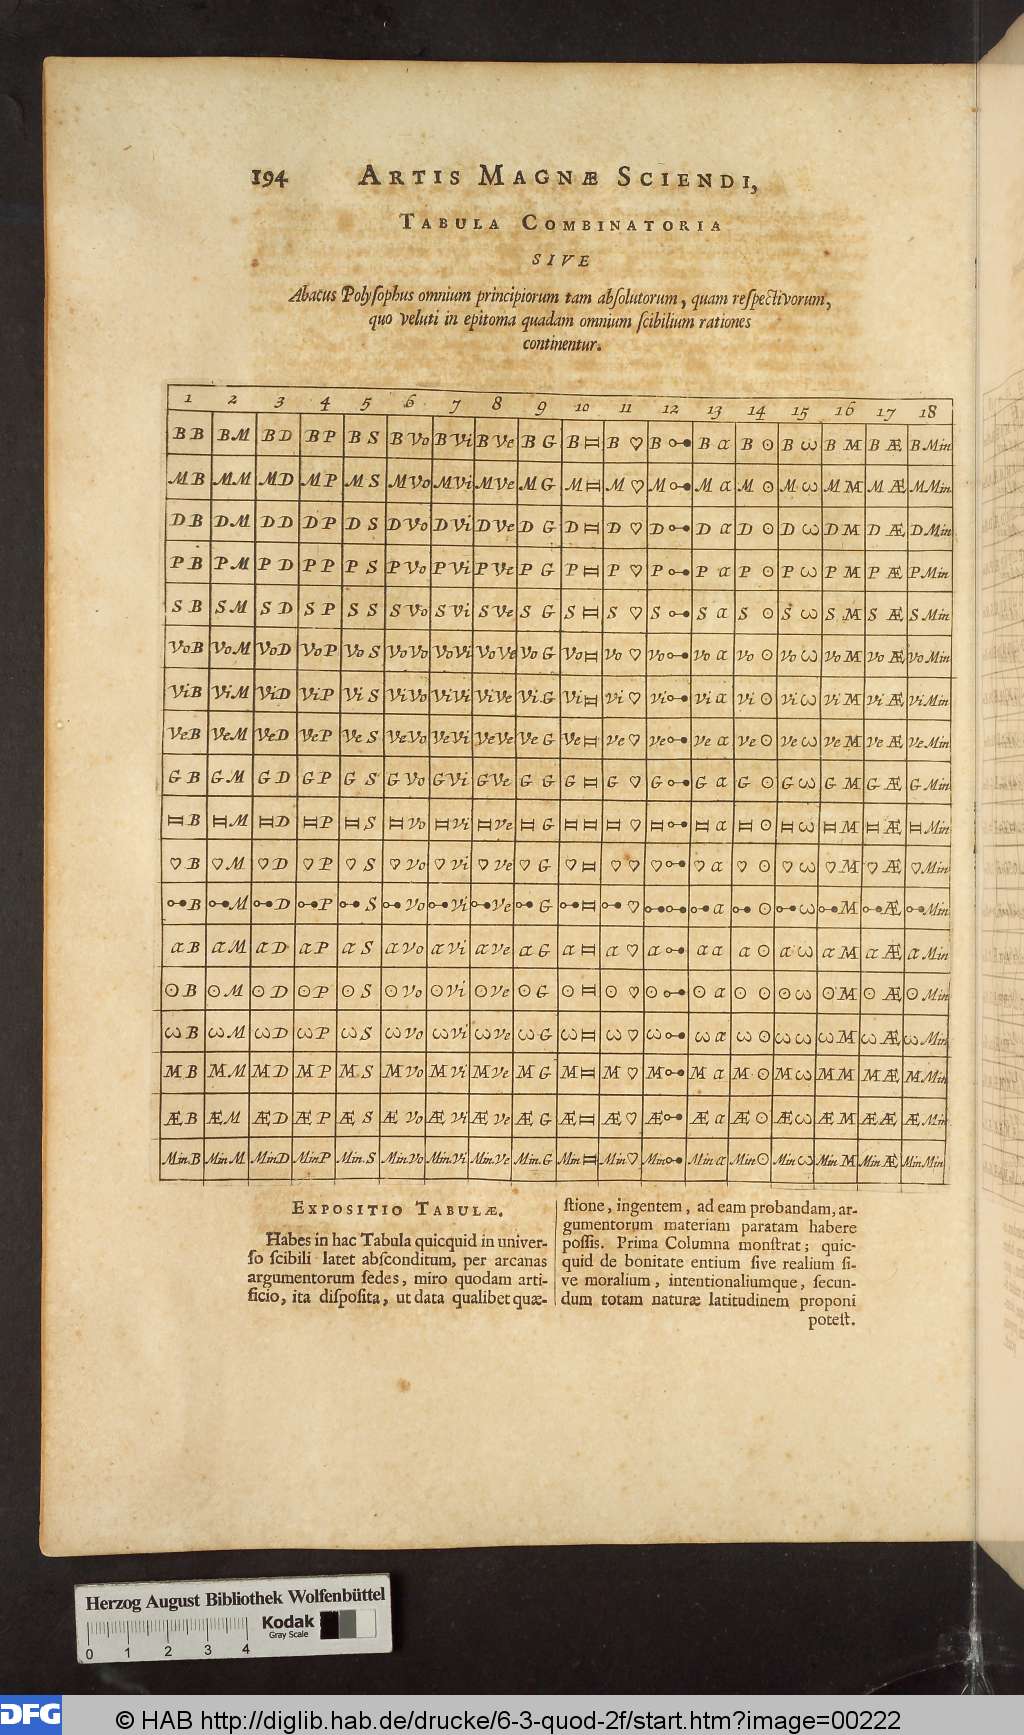 194 ARTIS MAGNÆ SCIENDI,
TABULA COMBINATORIA
SIVE
Abacus Polyſophus omnium principiorum tam abſolutorum, quam reſpectivorum,
quo veluti in epitoma quadam omnium ſcibilium rationes
continentur.
1 2 3 4 5 6 7 8 9 10 11 12 13 14 15 16 17 18
B B B M B D B P B S B Vo B Vi B Ve B G B B ♡ B B α B ☉ B ω B M B Æ B Min
M B M M M D M P M S M Vo M Vi M Ve M G M M ♡ M M α M ☉ M ω M M M Æ M Min
D B D M D D D P D S D Vo D Vi D Ve D G D D ♡ D D α D ☉ D ω D M D Æ D Min
P B P M P D P P P S P Vo P Vi P Ve P G P P ♡ P P α P ☉ P ω P M P Æ P Min
S B S M S D S P S S S Vo S Vi S Ve S G S S ♡ S S α S ☉ S ω S M S Æ S Min
Vo B Vo M Vo D Vo P Vo S Vo Vo Vo Vi Vo Ve Vo G Vo Vo ♡ Vo Vo α Vo ☉ Vo ω Vo M Vo Æ Vo Min
Vi B Vi M Vi D Vi P Vi S Vi Vo Vi Vi Vi Ve Vi G Vi Vi ♡ Vi Vi α Vi ☉ Vi ω Vi M Vi Æ Vi Min
Ve B Ve M Ve D Ve P Ve S Ve Vo Ve Vi Ve Ve Ve G Ve Ve ♡ Ve Ve α Ve ☉ Ve ω Ve M Ve Æ Ve Min
G B G M G D G P G S G Vo G Vi G Ve G G G G ♡ G G α G ☉ G ω G M G Æ G Min
B M D P S Vo Vi Ve G ♡ α ☉ ω M Æ Min
♡ B ♡ M ♡ D ♡ P ♡ S ♡ Vo ♡ Vi ♡ Ve ♡ G ♡ ♡ ♡ ♡ ♡ α ♡ ☉ ♡ ω ♡ M ♡ Æ ♡ Min
B M D P S Vo Vi Ve G ♡ α ☉ ω M Æ Min
α B α M α D α P α S α Vo α Vi α Ve α G α α ♡ α α α α ☉ α ω α M α Æ α Min
☉ B ☉ M ☉ D ☉ P ☉ S ☉ Vo ☉ Vi ☉ Ve ☉ G ☉ ☉ ♡ ☉ ☉ α ☉ ☉ ☉ ω ☉ M ☉ Æ ☉ Min
ω B ω M ω D ω P ω S ω Vo ω Vi ω Ve ω G ω ω ♡ ω ω α ω ☉ ω ω ω M ω Æ ω Min
M B M M M D M P M S M Vo M Vi M Ve M G M M ♡ M M α M ☉ M ω M M M Æ M Min
Æ B Æ M Æ D Æ P Æ S Æ Vo Æ Vi Æ Ve Æ G Æ Æ ♡ Æ Æ α Æ ☉ Æ ω Æ M Æ Æ Æ Min
Min. B Min M Min D Min P Min. S Min. Vo Min. Vi Min. Ve Min. G Min Min ♡ Min Min α Min ☉ Min ω Min M Min Æ Min Min
EXPOSITIO TABULÆ.
Habes in hac Tabula quicquid in univer-
ſo ſcibili latet abſconditum, per arcanas
argumentorum ſedes, miro quodam arti-
ficio, ita diſpoſita, ut data qualibet quæ-
ſtione, ingentem, ad eam probandam, ar-
gumentorum materiam paratam habere
poſſis. Prima Columna monſtrat; quic-
quid de bonitate entium ſive realium ſi-
ve moralium, intentionaliumque, ſecun-
dum totam naturæ latitudinem proponi
poteſt.
Herzog August Bibliothek Wolfenbüttel
Kodak
Gray Scale
0 1 2 3 4
DFG © HAB http://diglib.hab.de/drucke/6-3-quod-2f/start.htm?image=00222